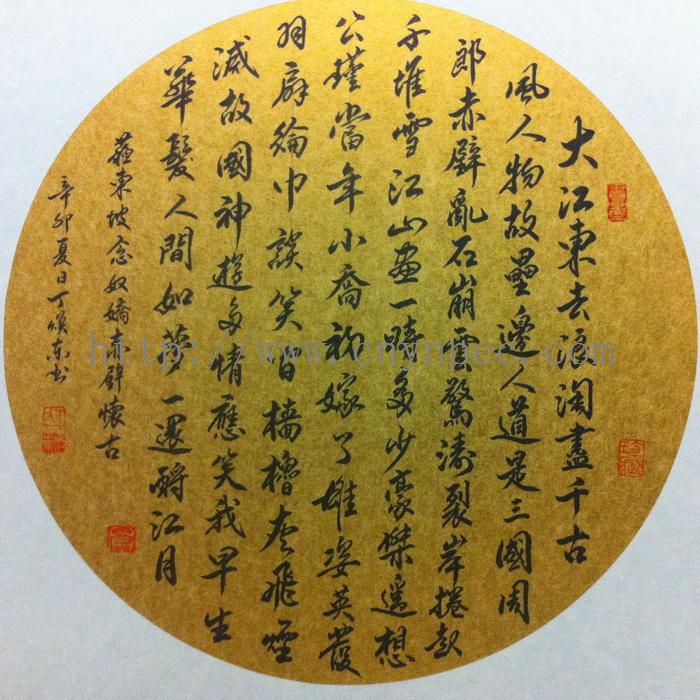 大江東去浪淘盡千古
風人物故壘邊人道是三國周
郎赤壁亂石崩雲驚濤裂岸捲起
千堆雪江山畫一時多少豪傑遥想
公瑾當年小喬初嫁了雄姿英發
羽扇綸巾談笑間檣櫓灰飛煙
滅故國神遊多情應笑我早生
華髮人間如夢一還酹江月
蘇東坡念奴嬌赤壁懷古
辛卯夏日丁煥東书
http://www.cnynpeel.com